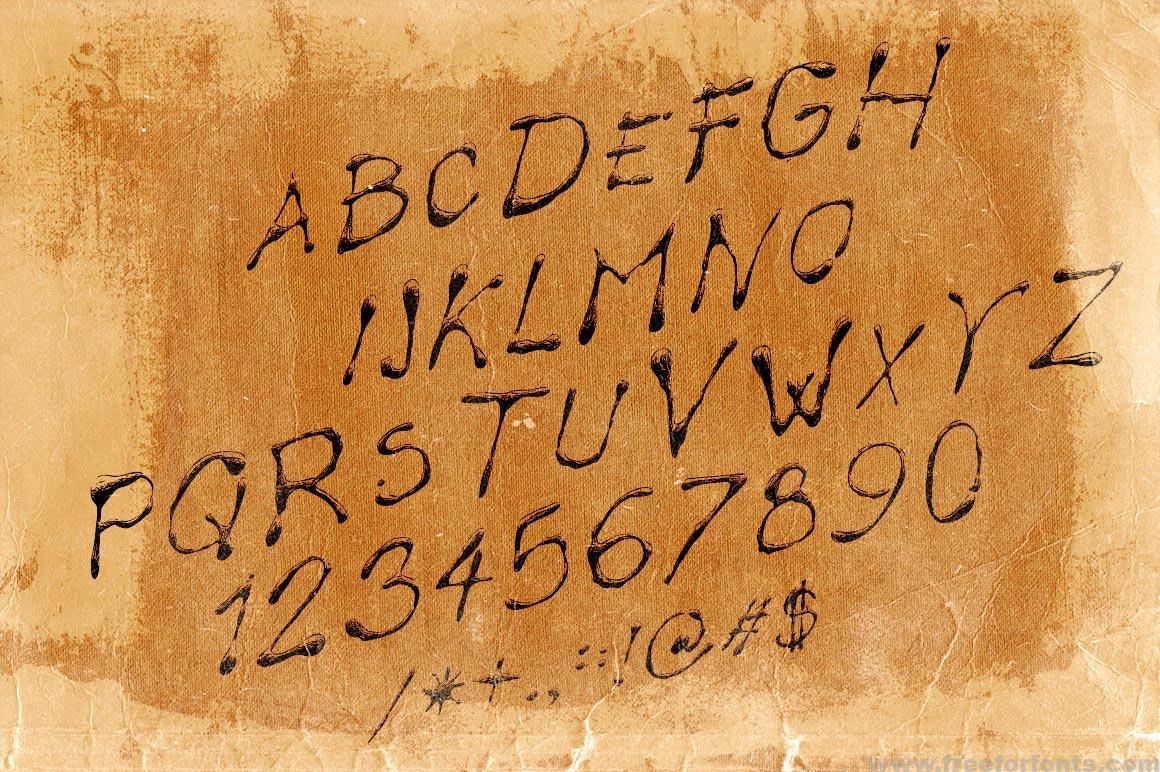 ABCDEFGH
IJKLMNO
PQRSTUVWXYZ
1234567890
/*+.,:;!@#$
www.freeforfonts.com